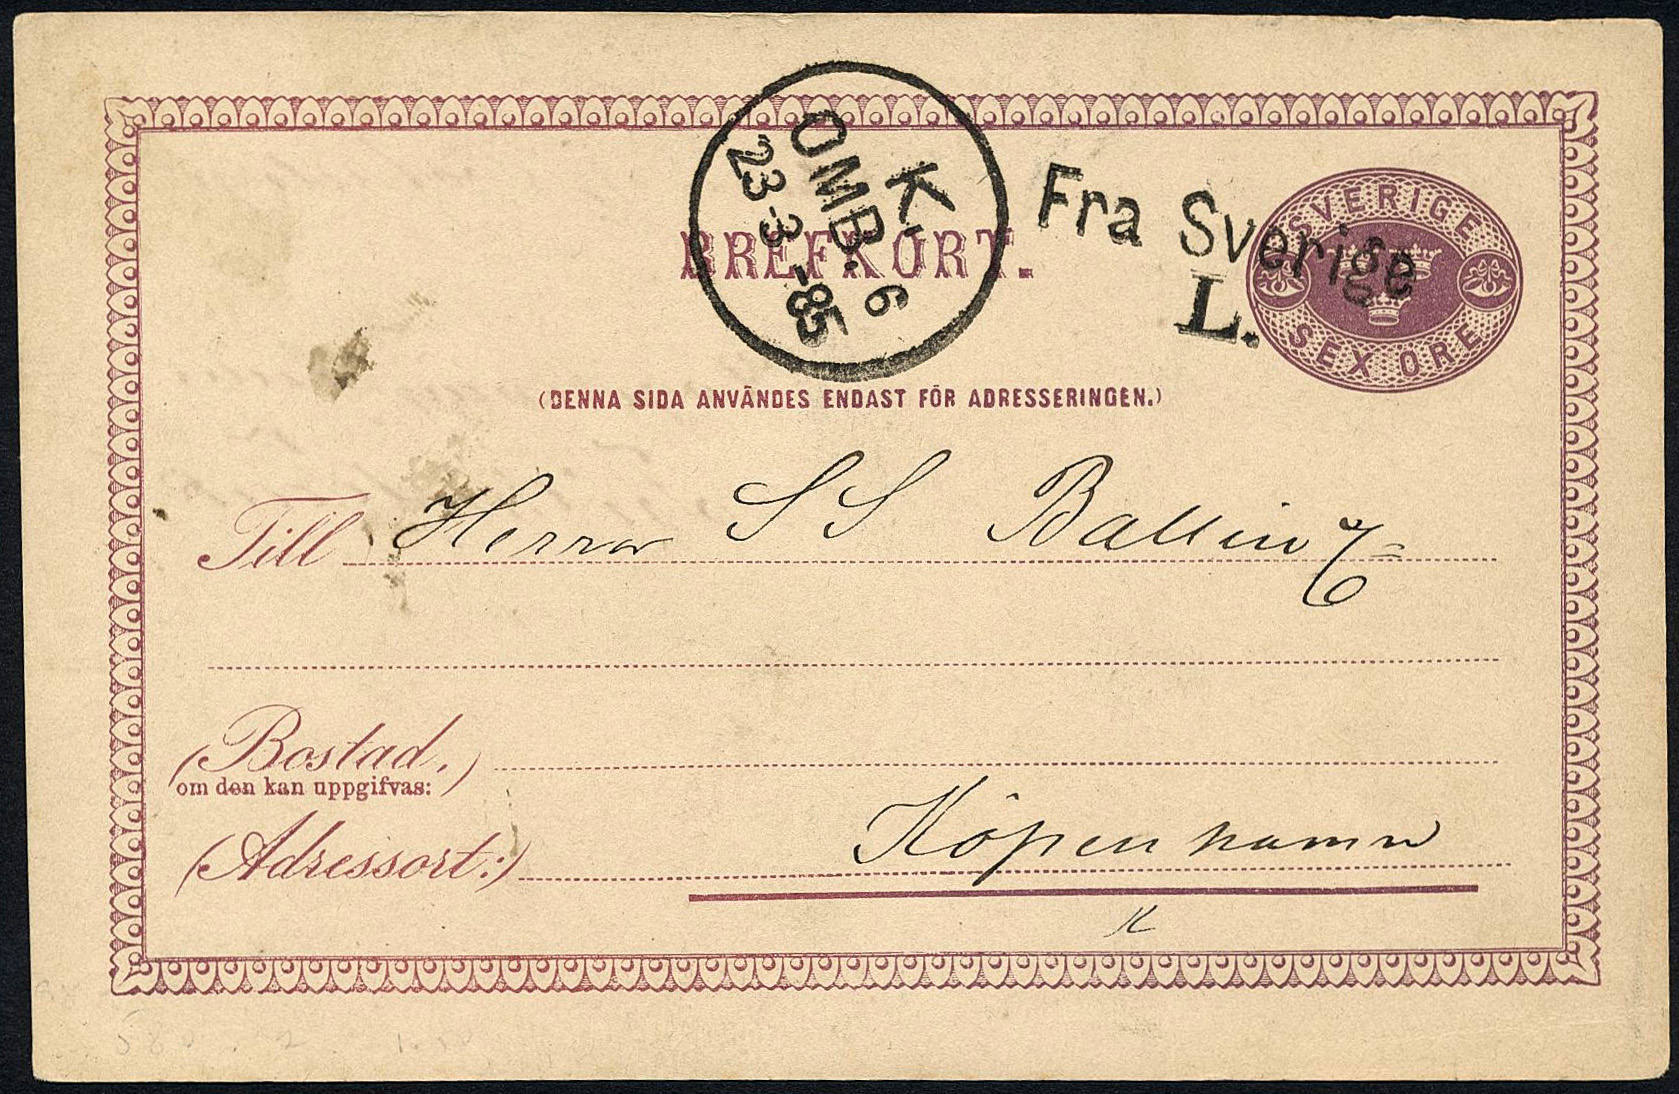 K.
OMB. 6
23-3-85
Fra Sverige
L.
SVERIGE
SEX ÖRE
BREFKORT.
(DENNA SIDA ANVÄNDES ENDAST FÖR ADRESSERINGEN.)
Till Herrar S S Balling
(Bostad,)
om den kan uppgifvas:
(Adressort:) Köpenhamn